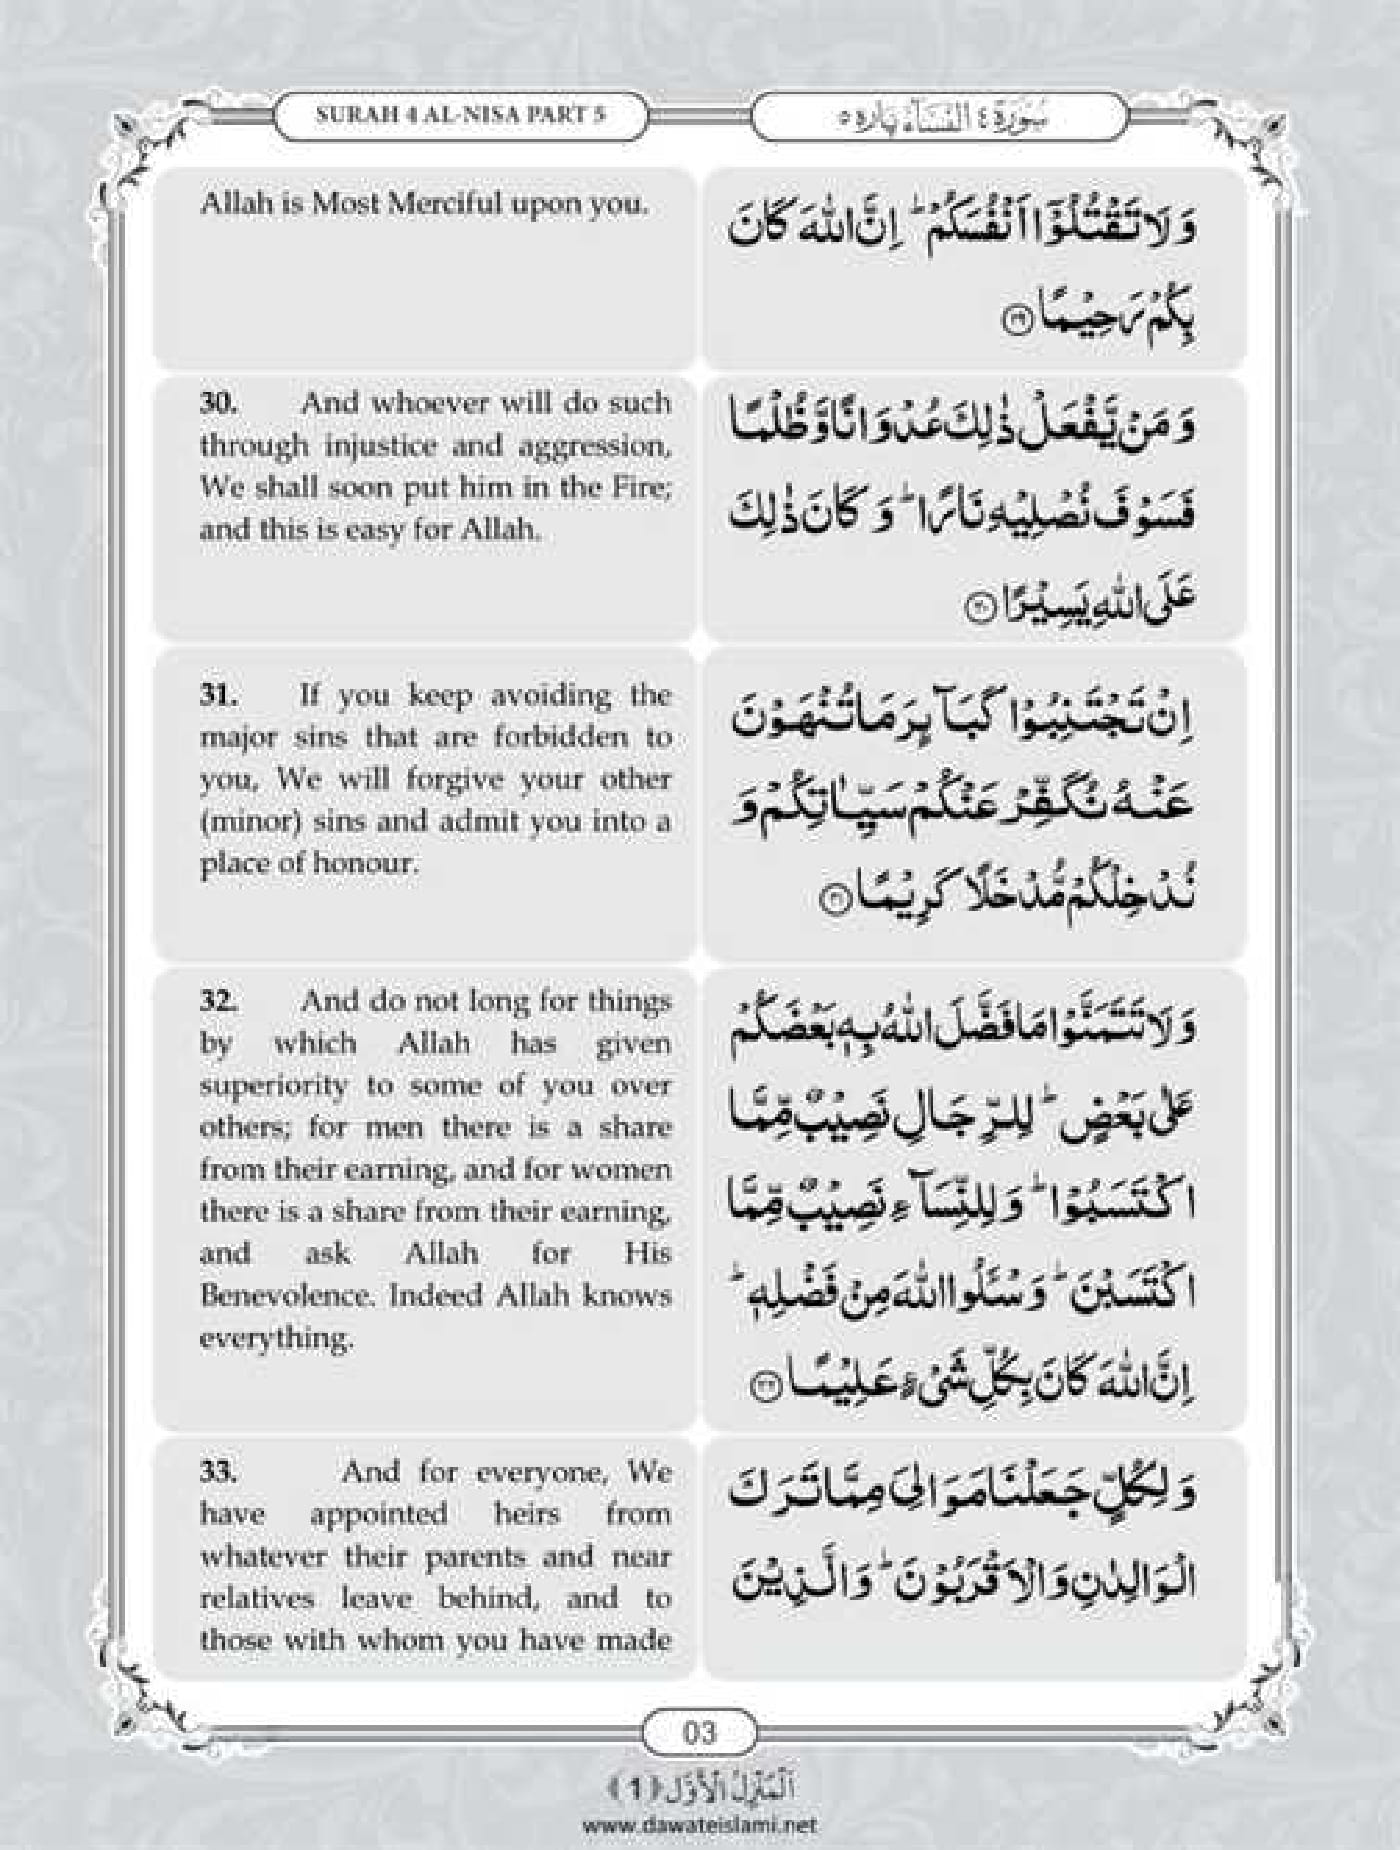 SURAH 4 AL-NISA PART 5
سُوْرَةُ ٤ اَلنِّسَآءُ پاره ٥
Allah is Most Merciful upon you.
وَلَا تَقْتُلُوْۤا اَنْفُسَكُمْ ؕ اِنَّ اللّٰهَ كَانَ
بِكُمْ رَحِيْمًا ﴿۲۹﴾
30. And whoever will do such
through injustice and aggression,
We shall soon put him in the Fire;
and this is easy for Allah.
وَ مَنْ يَّفْعَلْ ذٰلِكَ عُدْوَانًا وَّ ظُلْمًا
فَسَوْفَ نُصْلِيْهِ نَارًا ؕ وَ كَانَ ذٰلِكَ
عَلَى اللّٰهِ يَسِيْرًا ﴿۳۰﴾
31. If you keep avoiding the
major sins that are forbidden to
you, We will forgive your other
(minor) sins and admit you into a
place of honour.
اِنْ تَجْتَنِبُوْا كَبَآىِٕرَ مَا تُنْهَوْنَ
عَنْهُ نُكَفِّرْ عَنْكُمْ سَيِّاٰتِكُمْ وَ
نُدْخِلْكُمْ مُّدْخَلًا كَرِيْمًا ﴿۳۱﴾
32. And do not long for things
by which Allah has given
superiority to some of you over
others; for men there is a share
from their earning, and for women
there is a share from their earning,
and ask Allah for His
Benevolence. Indeed Allah knows
everything.
وَلَا تَتَمَنَّوْا مَا فَضَّلَ اللّٰهُ بِهٖ بَعْضَكُمْ
عَلٰى بَعْضٍ ؕ لِلرِّجَالِ نَصِيْبٌ مِّمَّا
اكْتَسَبُوْا ؕ وَ لِلنِّسَآءِ نَصِيْبٌ مِّمَّا
اكْتَسَبْنَ ؕ وَ سْئَلُوا اللّٰهَ مِنْ فَضْلِهٖ ؕ
اِنَّ اللّٰهَ كَانَ بِكُلِّ شَیْءٍ عَلِيْمًا ﴿۳۲﴾
33. And for everyone, We
have appointed heirs from
whatever their parents and near
relatives leave behind, and to
those with whom you have made
وَ لِكُلٍّ جَعَلْنَا مَوَالِیَ مِمَّا تَرَكَ
الْوَالِدٰنِ وَ الْاَقْرَبُوْنَ ؕ وَ الَّذِيْنَ
03
اَلْمَنْزِلُ الْاَوَّل ﴿1﴾
www.dawateislami.net